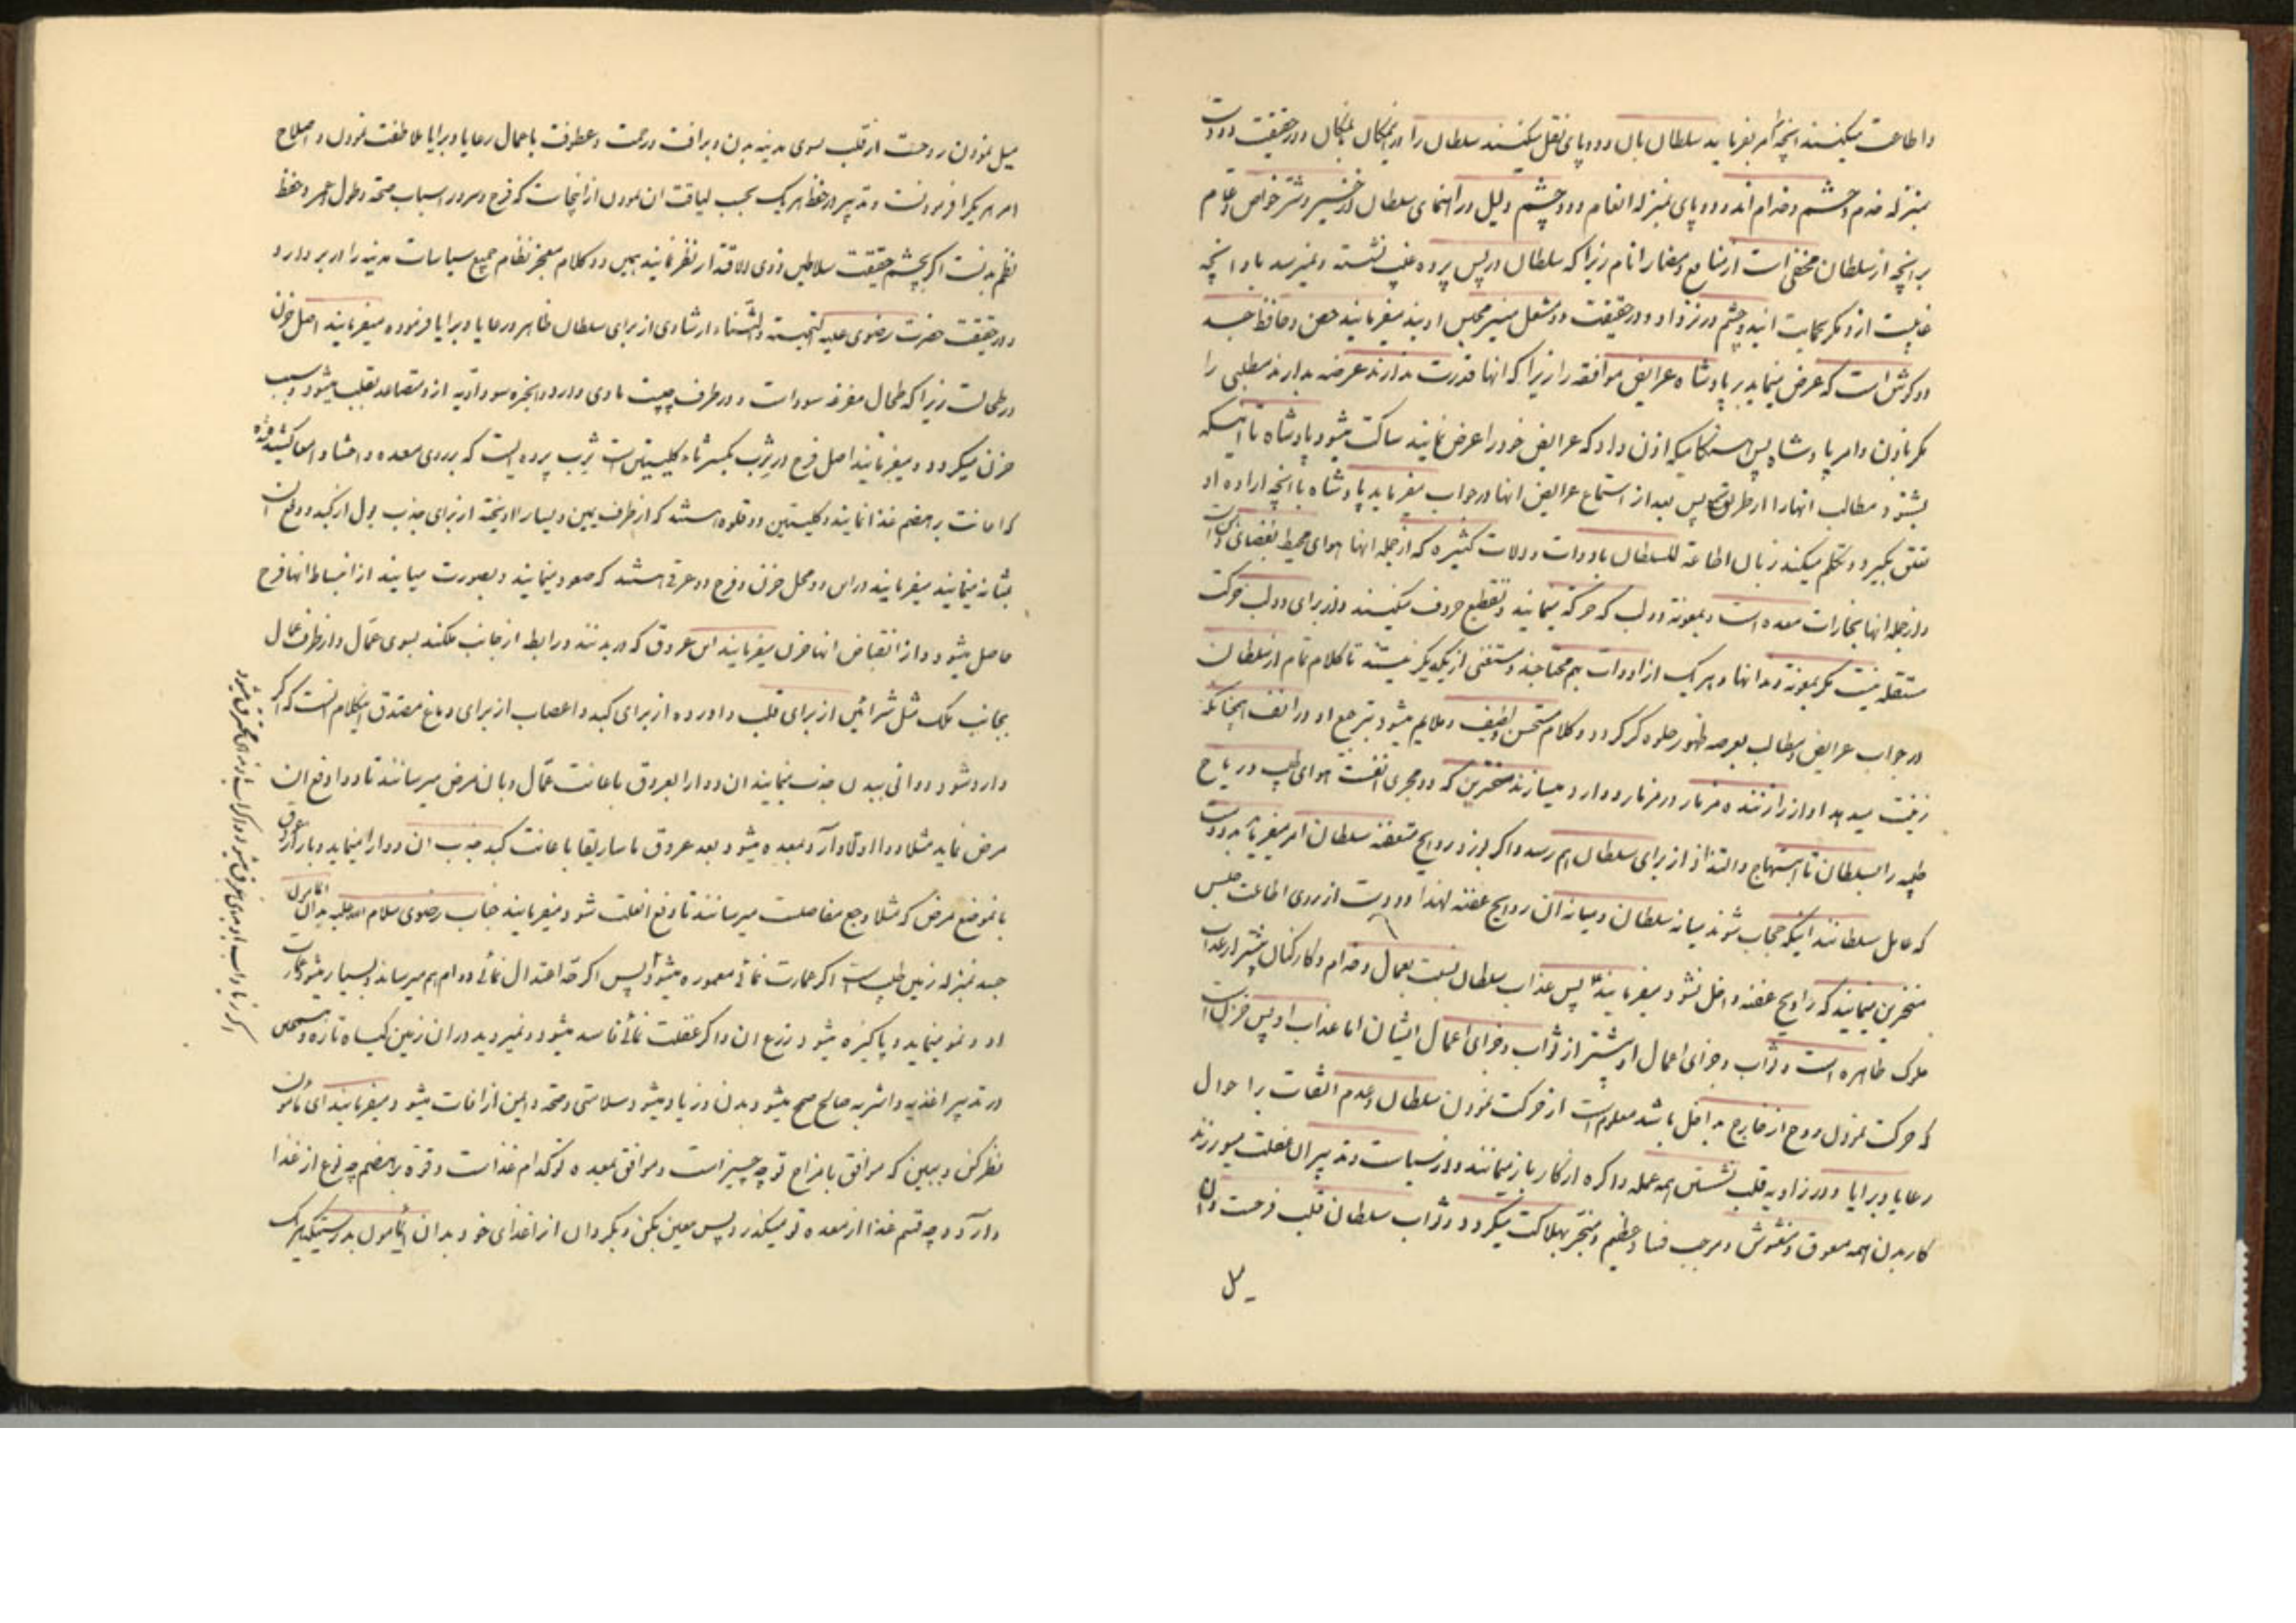 و اطاعت میکنند انچه امر بفرماید سلطان بان و دو پای نقل میکنند سلطان را از مکان بمکان و در حقیقت دو دست
بمنزله خدم و حشم و خدام اند و دو پای بمنزله انعام و دو چشم دلیل و راهنمای سلطان در خیر و شر خواص و عوام
بر انچه از سلطان مخفی است از منافع و مضار انام زیرا که سلطان در پس پرده غیب نشسته و نمیرسد باو انچه
غایبست از او مگر بحمایت این دو چشم در نزد او و در حقیقت دو مشعل منیر مجلس اویند میفرمایند حصن و حافظ جسد
دو گوش است که عرض مینماید بر پادشاه عرایض موافقه را زیرا که انها قدرت ندارند عرضه بدارند مطلبی را
مگر باذن و امر پادشاه پس هنگامیکه اذن داد که عرایض خود را عرض نمایند ساکت میشود پادشاه تا اینکه
بشنود مطالب انها را از طریق گوش پس بعد از استماع عرایض انها در جواب میفرماید پادشاه باانچه اراده او
تعلق بگیرد و تکلم میکند زبان اطاعة للسلطان بادوات و الات کثیره که از جمله انها هوای محیط بفضای دهن است
و از جمله انها بخارات معده است و بمعونه دو لب که حرکة مینمایند و تقطیع حروف میکنند و از برای دو لب حرکت
مستقله نیست مگر بمعونة دندانها و هر یک از ادوات بهم محتاجند و مستغنی از یکدیگر نیستند تا کلام تمام از سلطان
در جواب عرایض و مطالب بعرصه ظهور جلوه گر گردد و کلام مستحسن و لطیف و ملایم میشود بترجیع او در انف همچنانکه
زینت میدهد اواز را زننده مزمار در مزمار و وارد میسازند منخرین که دو مجری انفست هوای طیب و ریاح
طیبه را بسلطان تا ابتهاج و التذاذ از برای سلطان بهم رسد و اگر بوزد روایح متعفنه سلطان امر میفرماید بدو دست
که عامل سلطانند اینکه حجاب شوند میانه سلطان و میانه ان روایح عفنه لهذا دو دست از روی اطاعت حبس
منخرین مینمایند که روایح عفنه داخل نشود میفرمایند پس عذاب سلطان نسبت بعمال و خدام و کارکنان بیشتر از عذاب
ملوک ظاهره است و ثواب و جزای اعمال او بیشتر از ثواب و جزای اعمال ایشان اما عذاب او پس حزن است
که حرکت نمودن روح از خارج بداخل باشد معلوم است از حرکت نمودن سلطان و عدم التفات باحوال
رعایا و برایا و در زاویه قلب نشستن همه عمله و اکره از کار باز میمانند و از سیاست و تدبیر ان غفلت میورزند
کار بدن همه معوق و مغشوش و موجب فساد عظیم و منجر بهلاکت میگردد و ثواب سلطان قلب فرحست و ان
میل
میل نمودن روحست از قلب بسوی مدینه بدن و برافت و رحمت و عطوفت باعمال رعایا و برایا ملاطفت نمودن و اصلاح
امر هر یک را فرمودنست و تدبیر در حفظ هر یک بحسب لیاقت ان نمودن از اینجاست که فرح و سرور اسباب صحة و طول عمر و حفظ
نظم بدنست اگر بچشم حقیقت سلاطین ذوی الاقتدار نظر نمایند همین دو کلام معجز نظام جمیع سیاسات مدینه را در بر دارد و
در حقیقت حضرت رضوی علیه التحیة و الثناء ارشادی از برای سلطان ظاهر و رعایا و برایا فرموده میفرمایند اصل حزن
در طحالست زیرا که طحال مفرغه سوداست و در طرف چپست ماوی دارد و ابخره سوداویه از او متصاعد بقلب میشود و سبب
حزن میگردد و میفرمایند اصل فرح در ثرب بکسر ثاء و کلیتین است ثرب پرده ایست که بر روی معده و احشاء و امعا کشیده شده
که اعانت بر هضم غذا نمایند و کلیتین دو قلوه هستند که از طرف یمین و یسار اویخته از برای جذب بول از کبد و دفع ان
بمثانه مینمایند میفرمایند در این دو محل حزن و فرح دو عرق هستند که صعود مینمایند و بصورت میایند از انبساط انها فرح
حاصل میشود و از انقباض انها حزن میفرمایند این عروق که در بدنند و رابط از جانب ملکند بسوی عمال و از طرف عمال
بجانب ملک مثل شرائین از برای قلب و اورده از برای کبد و اعصاب از برای دماغ مصدق اینکلام انست که اگر
وارد شود دوائی ببدن جذب مینمایند ان دوا را بعروق باعانت عمال و بان مرض میرسانند تا دوا دفع ان
مرض نماید مثلا دوا اولا وارد بمعده میشود بعد عروق ماساریقا باعانت کبد جذب ان دوا را مینماید و باز از عروق
بانموضع مرض که مثلا وجع مفاصلست میرسانند تا دفع انعلت شود میفرمایند جناب رضوی سلام الله علیه بدان ای مامون
جسد بمنزله زمین طیب است اگر عمارت نمائی معموره میشود پس اگر حد اعتدال نمائی دوام بهم میرساند و بسیار میشود عمارت
او و نمو مینماید و پاکیزه میشود زرع ان و اگر غفلت نمائی فاسد میشود و نمیروید در ان زمین گیاه تازه و مستحسن
در تدبیر اغذیه و اشربه صالح صحیح میشود بدن و زیاد میشود سلامتی و صحة و ایمن از افات میشود میفرمایند ای مامون
نظر کن و ببین که موافق با مزاج تو چه چیز است و موافق بمعده تو کدام غذاست و قوه بهضم چه نوع از غذا
دارد و چه قسم غذا از معده تو میگذرد پس معین بکن و بگردان از اغذای خود بدان ایمامون بدرستیکه هر یک